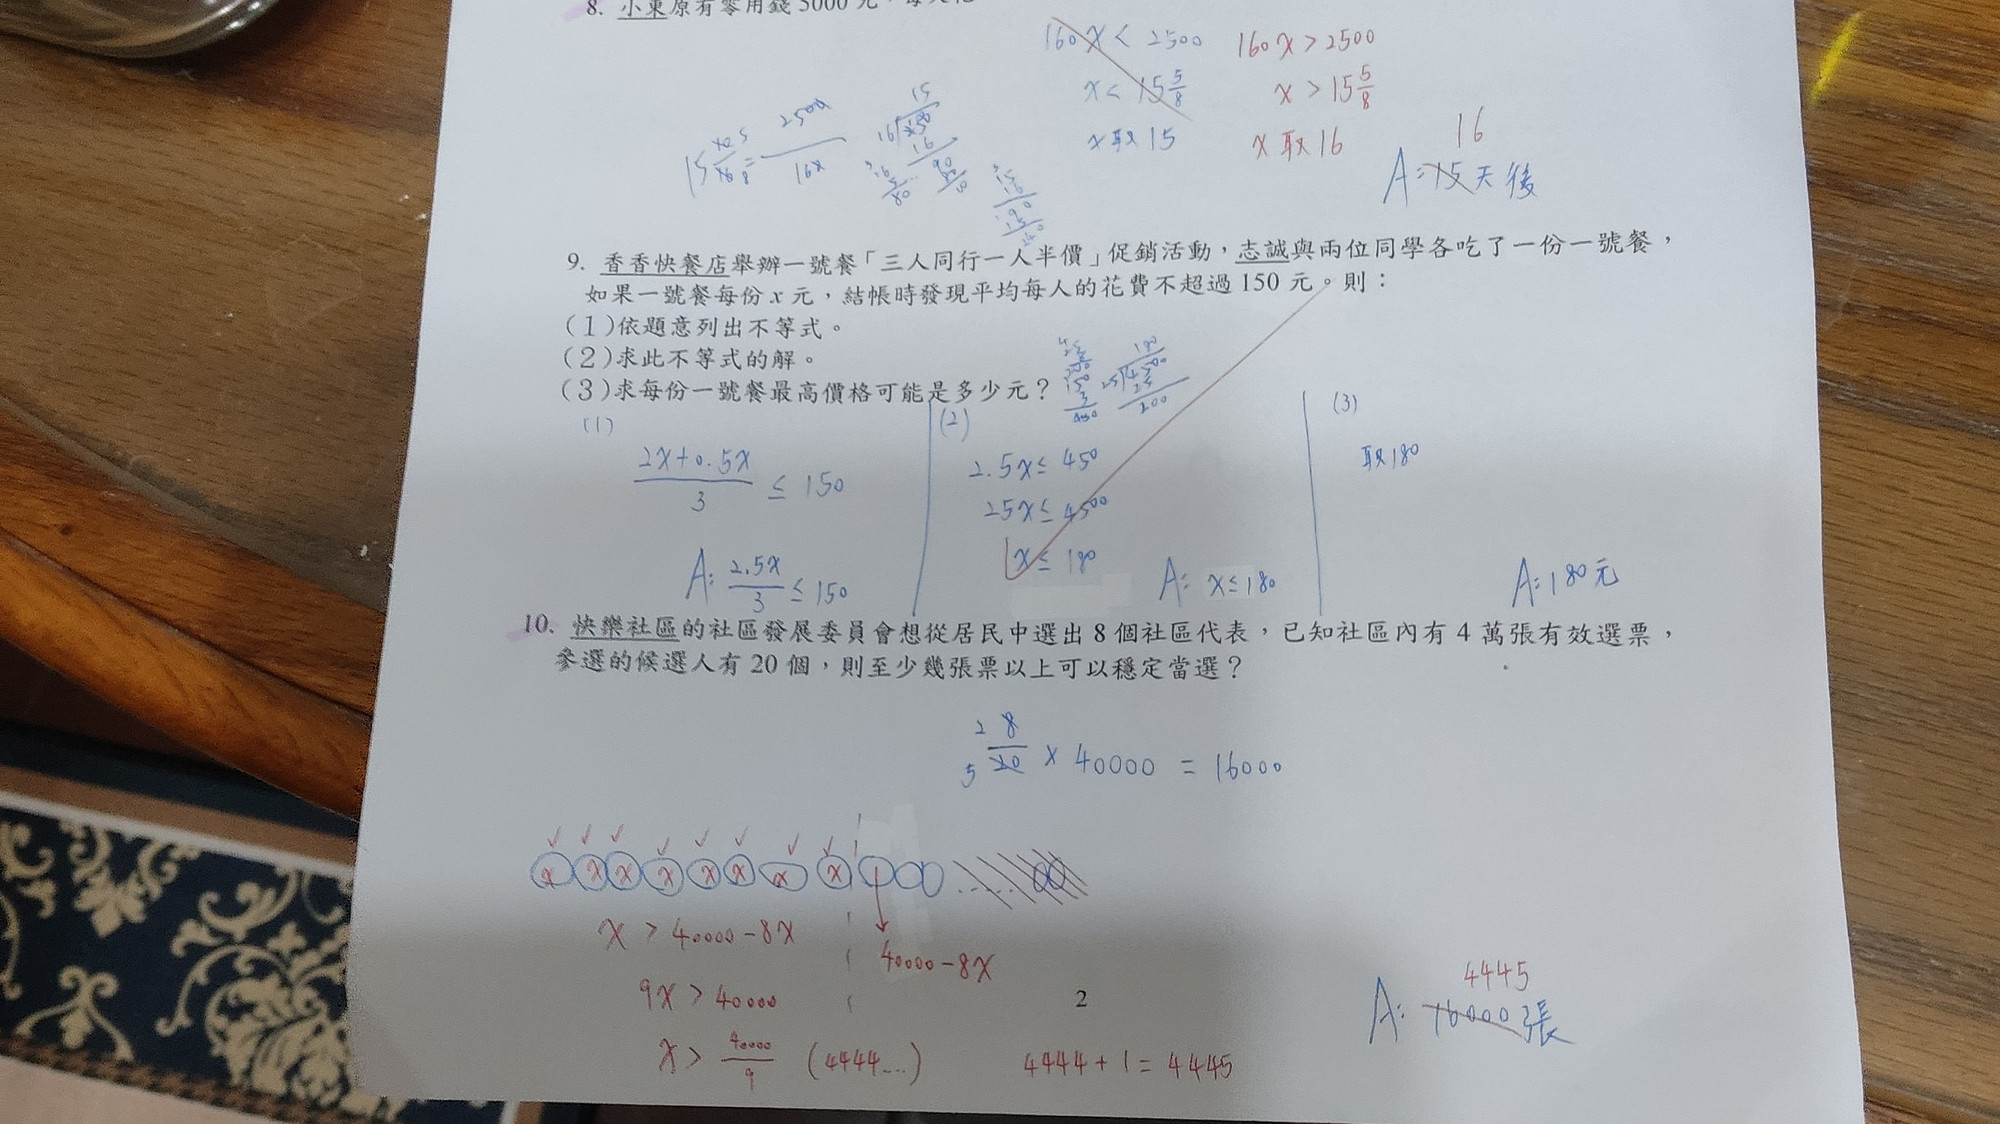 8. 小東原有零用錢5000元，每天花
160x < 2500 160x > 2500
x < 15 5/8 x > 15 5/8
x取15 x取16
16
A:15天後
9. 香香快餐店舉辦一號餐「三人同行一人半價」促銷活動，志誠與兩位同學各吃了一份一號餐，
如果一號餐每份x元，結帳時發現平均每人的花費不超過150元。則：
(1)依題意列出不等式。
(2)求此不等式的解。
(3)求每份一號餐最高價格可能是多少元？
(1) (2) (3)
(2x+0.5x)/3 ≤ 150
A: 2.5x/3 ≤ 150
2.5x ≤ 450
25x ≤ 4500
x ≤ 180
A: x ≤ 180
取180
A:180元
10. 快樂社區的社區發展委員會想從居民中選出8個社區代表，已知社區內有4萬張有效選票，
參選的候選人有20個，則至少幾張票以上可以穩定當選？
2 8
5 20 × 40000 = 16000
x x x x x x x x
x > 40000-8x
40000-8x
9x > 40000
x > 40000/9 (4444...)
4444+1=4445
4445
A: 16000張
2